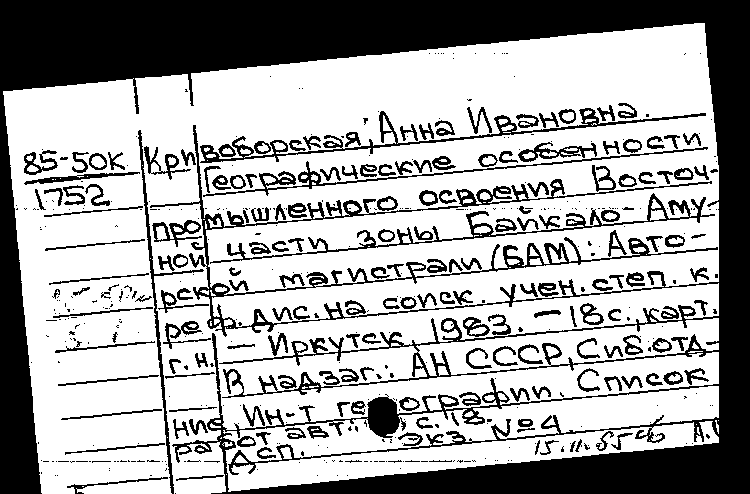 85-50к
1752
Кривоборская, Анна Ивановна.
Географические особенности
промышленного освоения Восточ-
ной части зоны Байкало-Аму-
рской магистрали (БАМ): Авто-
реф. дис. на соиск. учен. степ. к.
г.н. — Иркутск, 1983. — 18 с., карт.
В надзаг.: АН СССР, Сиб. отд-
ние, Ин-т географии. Список
работ авт.: с. 18.
Дсп. Экз. №4.
15.11.85